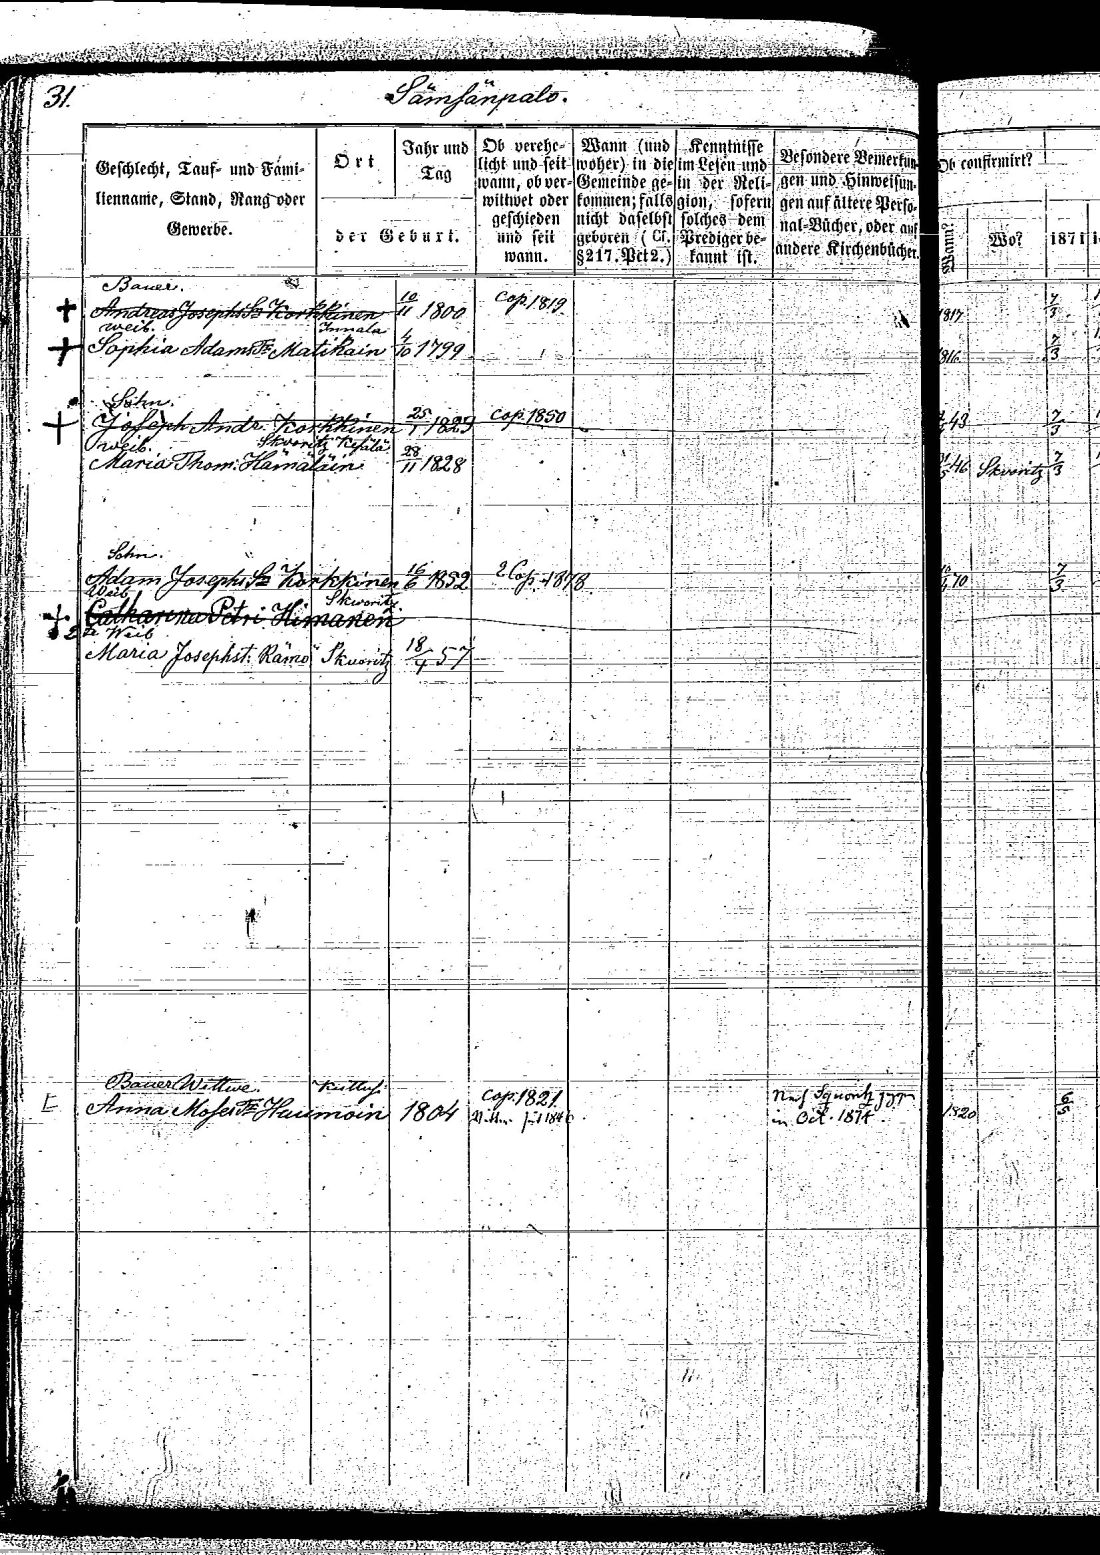 31.
Sämsänpalo.
Geschlecht, Tauf- und Fami-
lienname, Stand, Rang oder
Gewerbe.
Ort
Jahr und
Tag
der Geburt.
Ob verehe-
licht und seit
wann, ob ver-
wittwet oder
geschieden
und seit
wann.
Wann (und
woher) in die
Gemeinde ge-
kommen; falls
nicht daselbst
geboren (Cf.
§217. Pct 2.)
Kenntnisse
im Lesen und
in der Reli-
gion, sofern
solches dem
Prediger be-
kannt ist.
Besondere Bemerkun-
gen und Hinweisun-
gen auf ältere Perso-
nal-Bücher, oder auf
andere Kirchenbücher.
Ob confirmirt?
Wann?
Wo?
1871
Bauer.
Andreas Josephs Sn Korkkinen 10/11 1800 Cop. 1819 1817 7/3
Weib. Innala
Sophia Adams Tr Matikain 4/10 1799 1816 7/3
Sohn.
Joseph Andr. Korkkinen 25/1 1829 Cop. 1850 48 7/3
Weib. Skvoritz Kejälä
Maria Thom. Hämäläin 28/11 1828 46 Skvoritz 7/3
Sohn.
Adam Josephs Sn Korkkinen 16/6 1852 2 Cop. 1878 70 7/3
Weib Skworitz.
Catharina Petri Himanen
2te Weib
Maria Josephst. Rämö Skvoritz 18/4 57
Bauer Wittwe.
Anna Moses Tr Haimoin 1804 Cop. 1821 1820
in Oct. 1874.